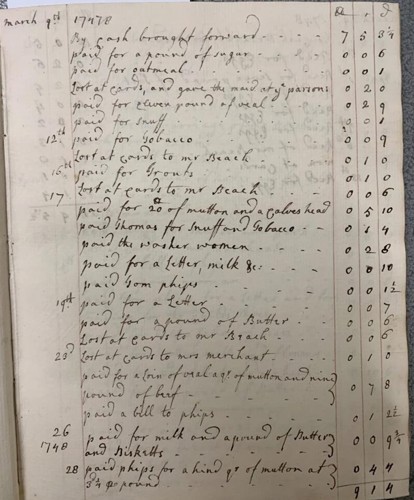 March 9th 1747/8 £ s d
By cash brought forward 7 5 3 1/4
paid for a pound of sugar 0 0 6
paid for oatmeal 0 0 1
Lost at Cards, and gave the maid at ye parsons 0 2 0
paid for eleven pound of veal 0 2 9
paid for snuff 0 0 1
12th paid for Tobacco 0 0 9
Lost at Cards to mr Beach 0 1 0
16th paid for Trouts 0 1 0
17 Lost at Cards to mr Beach 0 0 6
paid for of mutton and a Calves head 0 5 10
paid Thomas for Snuff and Tobacco 0 1 4
paid the washer women 0 2 8
paid for a Letter, milk &c: 0 0 10
paid Gom phips 0 0 1 1/2
19th paid for a Letter 0 0 7
paid for a pound of Butter 0 0 6
Lost at Cards to mr Beach 0 0 6
23d Lost at Cards to mrs merchant 0 1 0
paid for a Loin of veal a qr of mutton and nine
pound of beef 0 7 8
paid a bill to phips 0 1 2 1/2
26 paid for milk and a pound of Butter
1748 and Bisketts 0 0 9 3/4
28 paid phips for a hind qr of mutton at
3 1/4 pr pound 0 4 4
9 1 4